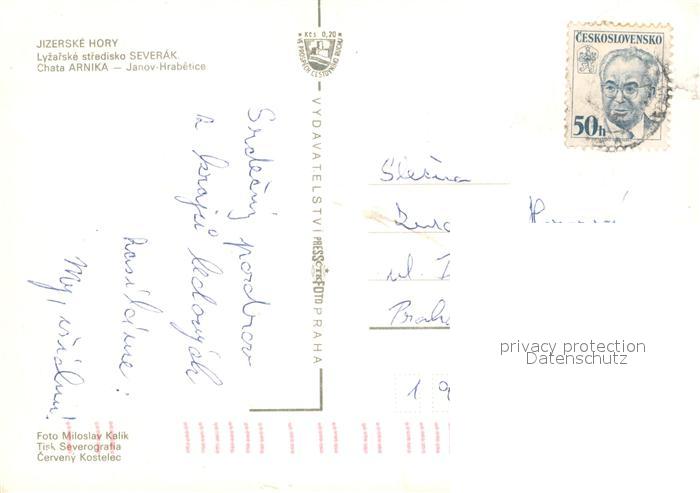 JIZERSKÉ HORY
Lyžařské středisko SEVERÁK.
Chata ARNIKA — Janov-Hrabětice
Kčs 0,20
VE PROSPĚCH CESTOVNÍHO RUCHU
ČESKOSLOVENSKO
50h
VYDAVATELSTVÍ PRESSFOTO PRAHA
Srdečný pozdrav
z krajů ledových
zasíláme
My,
Slečna
ul.
Praha
1 9
privacy protection
Datenschutz
Foto Miloslav Kalík
Tisk Severografia
Červený Kostelec